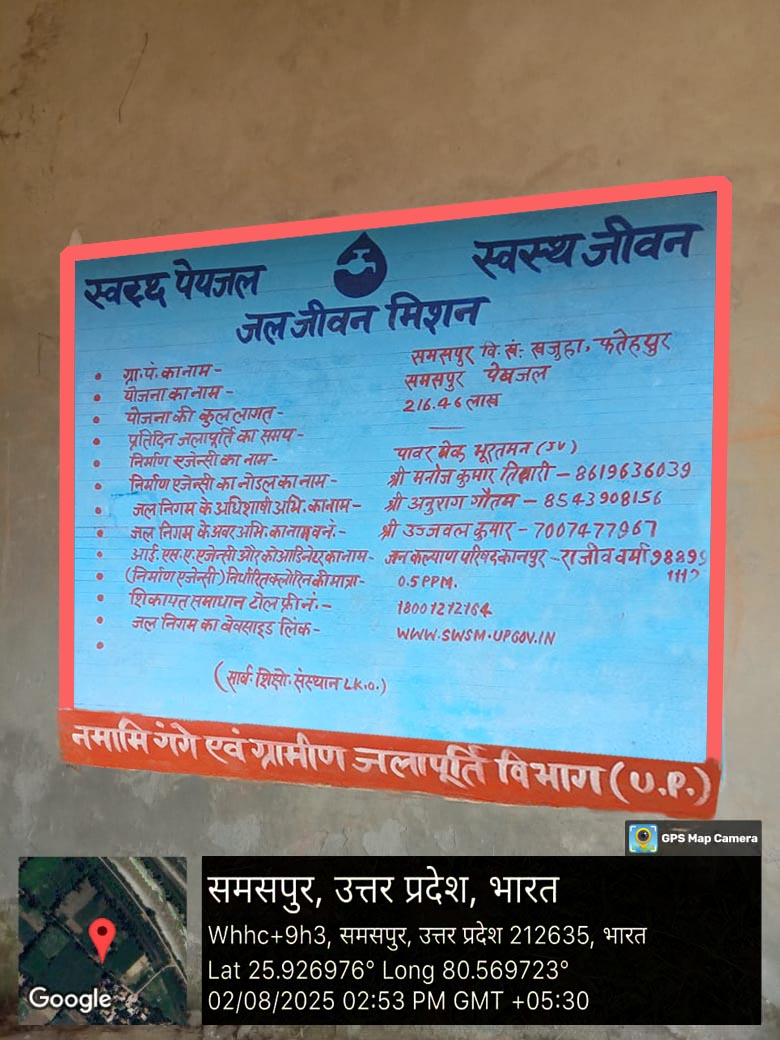 स्वच्छ पेयजल
स्वस्थ जीवन
जल जीवन मिशन
ग्रा.पं. का नाम - समसपुर वि. खं. खजुहा, फतेहपुर
योजना का नाम - समसपुर पेयजल
योजना की कुल लागत - 216.46 लाख
प्रतिदिन जलापूर्ति का समय -
निर्माण एजेन्सी का नाम - पावर मेक भूरतमन (JV)
निर्माण एजेन्सी का नोडल का नाम - श्री मनोज कुमार तिवारी - 8619636039
जल निगम के अधिशाषी अभि. का नाम - श्री अनुराग गौतम - 8543908156
जल निगम के अवर अभि. का नाम व नं. - श्री उज्जवल कुमार - 7007477967
आई.एस.ए. एजेन्सी और कोआडिनेटर का नाम - जन कल्याण परिषद कानपुर - राजीव वर्मा 98899
1117
(निर्माण एजेन्सी) निर्धारित क्लोरिन की मात्रा - 0.5 PPM.
शिकायत समाधान टोल फ्री नं. - 18001212164
जल निगम का बेवसाइड लिंक - WWW.SWSM.UPGOV.IN
(सार्व. शिक्षो. संस्थान LK.O.)
नमामि गंगे एवं ग्रामीण जलापूर्ति विभाग (U.P.)
GPS Map Camera
समसपुर, उत्तर प्रदेश, भारत
Whhc+9h3, समसपुर, उत्तर प्रदेश 212635, भारत
Lat 25.926976° Long 80.569723°
02/08/2025 02:53 PM GMT +05:30
Google